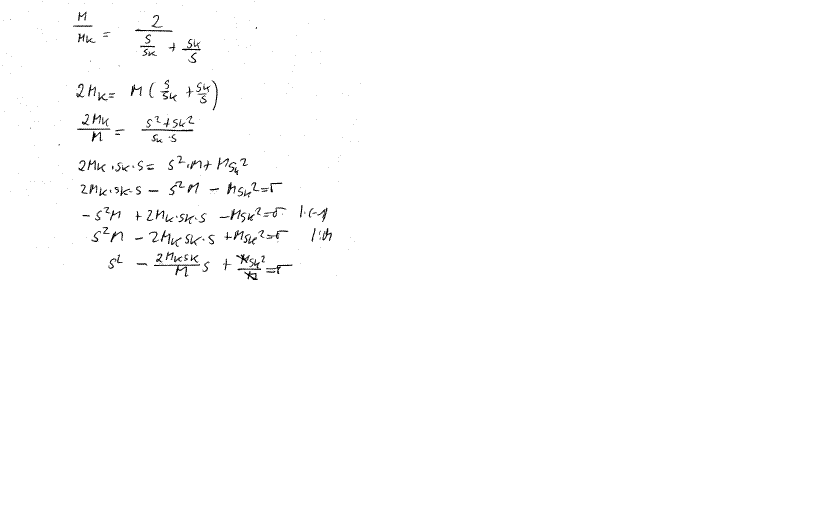 M/Mk = 2/(s/sk + sk/s)
2Mk = M(s/sk + sk/s)
2Mk/M = (s²+sk²)/(sk·s)
2Mk·sk·s = s²·M + Msk²
2Mk·sk·s - s²M - Msk² = 0
-s²M + 2Mk·sk·s - Msk² = 0 |·(-1)
s²M - 2Mk sk·s + Msk² = 0 |:M
s² - (2Mk sk/M)s + Msk²/M = 0